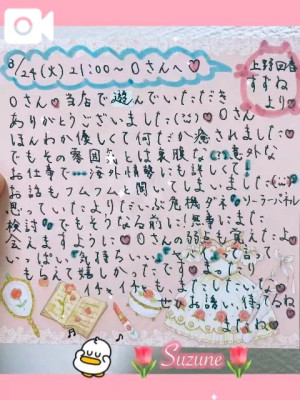 8/24(火)21:00〜Oさんへ♡
上野回春
すずね
より♡
Oさん♡当店で遊んでいただき
ありがとうございました(ｰ̈)♡Oさん
ほんわか優しくて何だか癒されました♡
でもその雰囲気とは裏腹な 意外な
お仕事で…海外情勢にも詳しくて!
お話もフムフムと聞いてしまいました
思っていたよりだいぶ危機ダネ ソーラーパネル
検討 でもそうなる前に無事にまた
会えますように♡Oさんの 覚えたよ
いっぱい気持ちいい 言って
もらえて嬉しかったです
イチャイチャも、またしたいな
お誘い 待ってるね
またね♡
Suzune